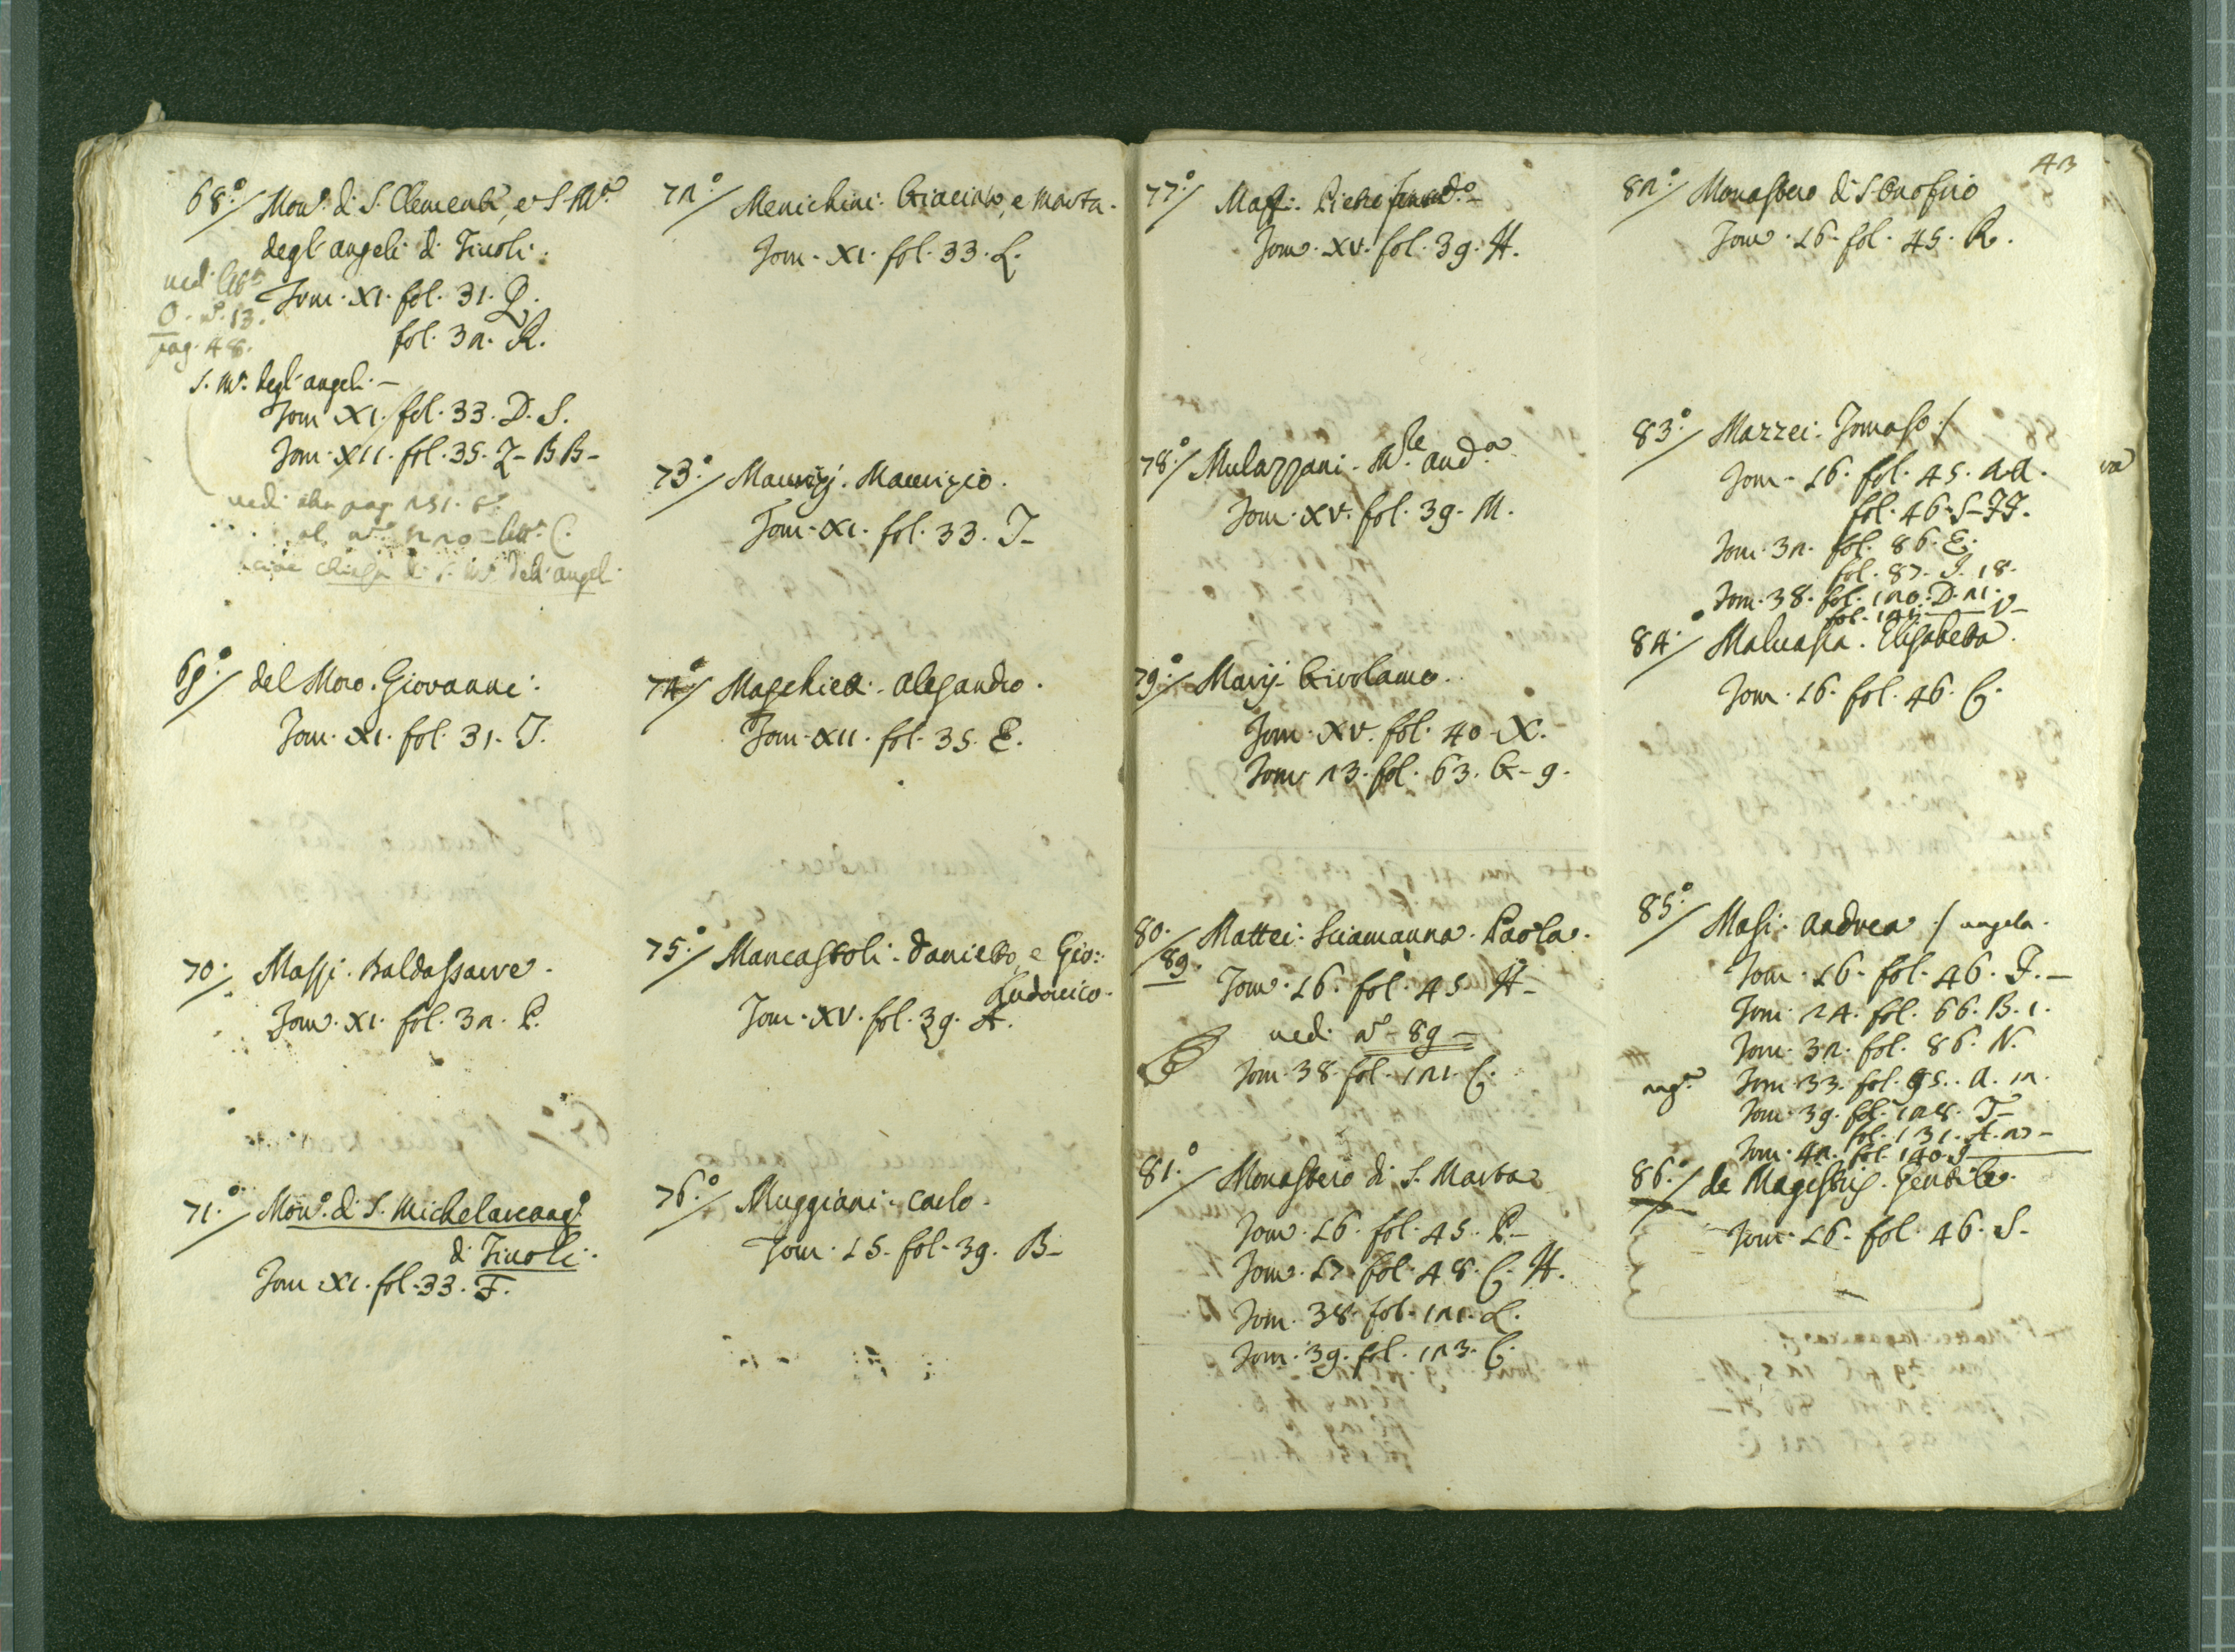 68.o/ Mon.o di S. Clemente, e S. M.a
degl'angeli di Tiuoli.
ued. litt.a
O. n.o 13.
pag. 48.
Tom. XI. fol. 31. Q.
fol. 32. R.
S. M.a degl'angeli. —
Tom XI. fol. 33. D. S.
Tom. XII. fol. 35. Z - BB -
uedi pag. 251.
al n.o 220 - litt.a C.
cioè chiesa di S. M.a deli angeli
69.o/ del Moro. Giovanni.
Tom. XI. fol. 31. T.
70./ Massi. Baldassarre.
Tom. XI. fol. 32. P.
71.o/ Mon.o di S. Michelarcang.o
di Tiuoli.
Tom XI. fol. 33. F.
72.o/ Menichini. Giacinto, e Marta.
Tom. XI. fol. 33. L.
73.o/ Maurizj. Maurizio.
Tom. XI. fol. 33. T -
74.o/ alesandro.
Tom. XII. fol. 35. E.
75.o/ Mancastoli. Daniello, e Gio:
Ludouico.
Tom. XV. fol. 39. A.
76.o/ Muggiani. Carlo.
Tom. 15. fol. 39. B -
77.o/ Pietro
Tom. XV. fol. 39. H.
78.o/ Mulazzani. M.se And.a
Tom. XV. fol. 39. M.
79.o/ Marij. Girolamo.
Tom. XV. fol. 40. X.
Tom. 23. fol. 63. G - 9.
80./ Mattei. Sciamanna. Paola.
89.
Tom. 16. fol. 45 H -
ued. n.o - 89 -
Tom. 38. fol. 121. C.
81.o/ Monastero di S. Marta
Tom. 16. fol. 45. P. -
Tom. 17. fol. 48. C. H.
Tom. 38. fol. 121. L.
Tom. 39. fol. 123. C.
42
82.o/ Monastero di S Onofrio
Tom. 16. fol. 45. R.
83.o/ Mazzei. Tomaso /
Tom. 16. fol. 45. AA.
fol. 46. S - FF.
Tom. 32. fol. 86. E.
fol. 87. I. 18.
Tom. 38. fol. 120. D. 21.
fol. 121. V -
84.o/ Maluasia. Elisabetta.
Tom. 16. fol. 46. C.
85.o/ Masi. Andrea / angela.
Tom. 16. fol. 46. F. -
Tom. 24. fol. 66. B. 1.
Tom. 32. fol. 86. N.
ang.a Tom. 33. fol. 95. A. 12.
Tom. 39. fol. 128. T -
fol. 131. A. 22 -
Tom. 42. fol. 140. I
86.o/ de Magistris. Gentile.
Tom. 16. fol. 46. S -